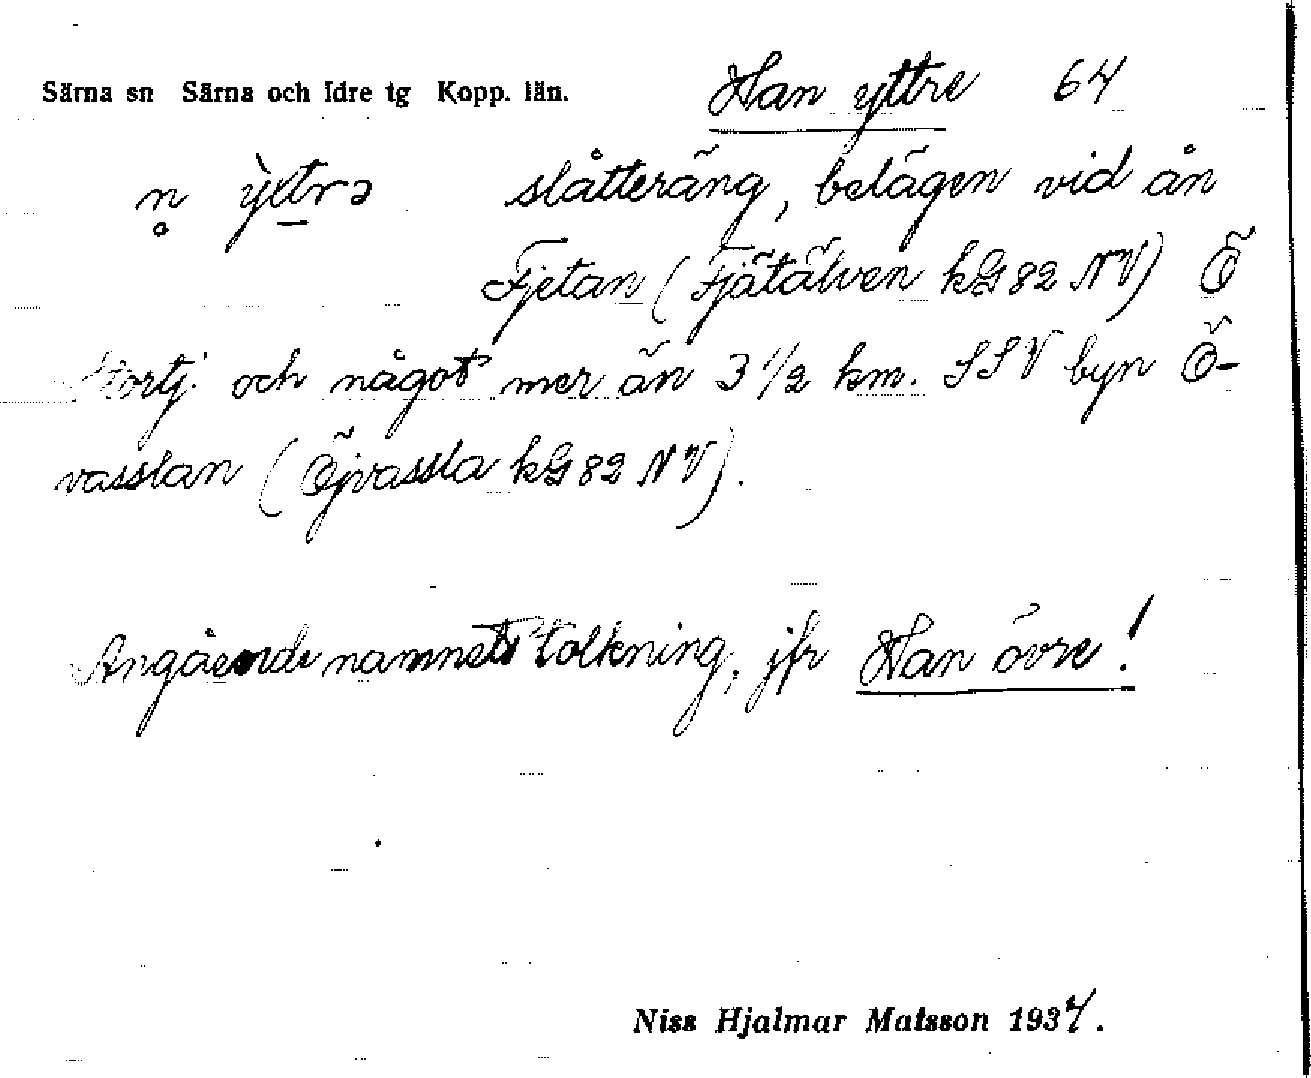 Särna sn Särna och Idre tg Kopp. län. Han yttre 64
n̥ ỳttrə slåtteräng, belägen vid ån
Fjetan (Fjätälven kG82 NV) Ö
Stortj. och något mer än 3 1/2 km. SSV byn Ö-
vasslan (Öjvassla kG82 NV).
Angående namnets tolkning, jfr Han övre!
Niss Hjalmar Matsson 1937.